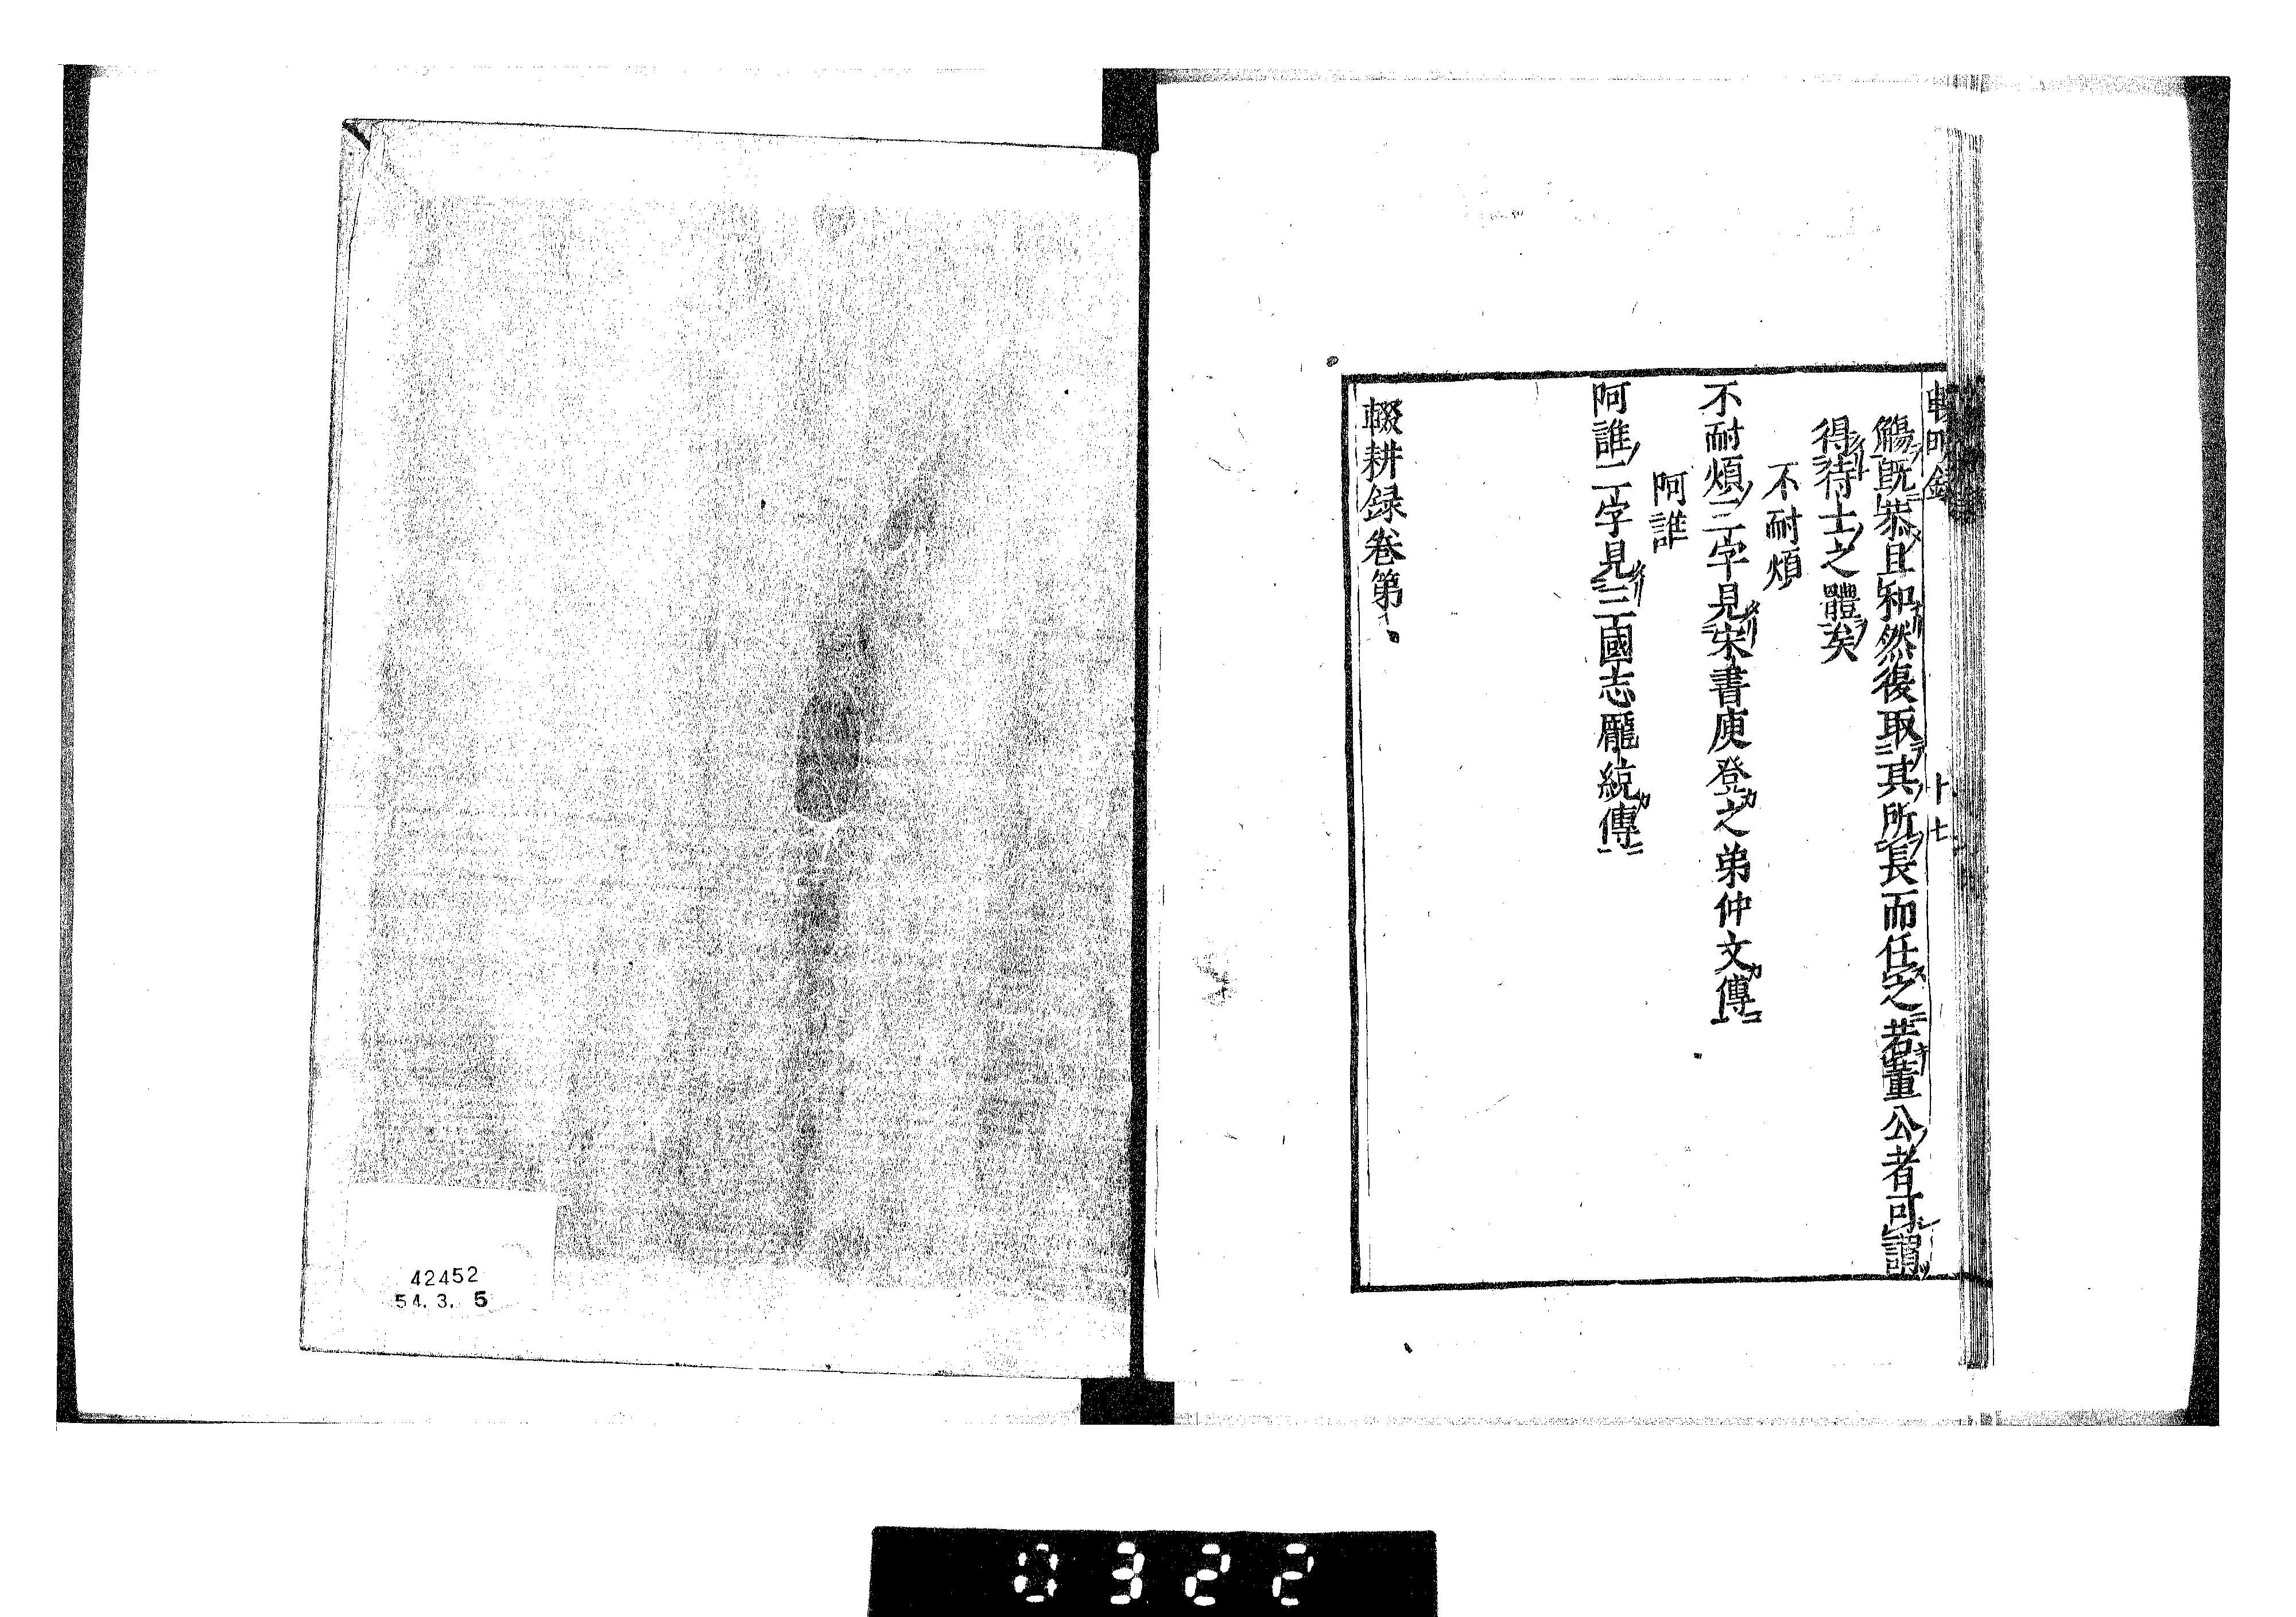 十七
觴既恭且和然後取其所長而任之若董公者可謂
得待士之體矣
不耐煩
不耐煩三字見宋書庾登之弟仲文傳
阿誰
阿誰二字見三國志龐統傳
輟耕録卷第
42452
54. 3. 5
0322